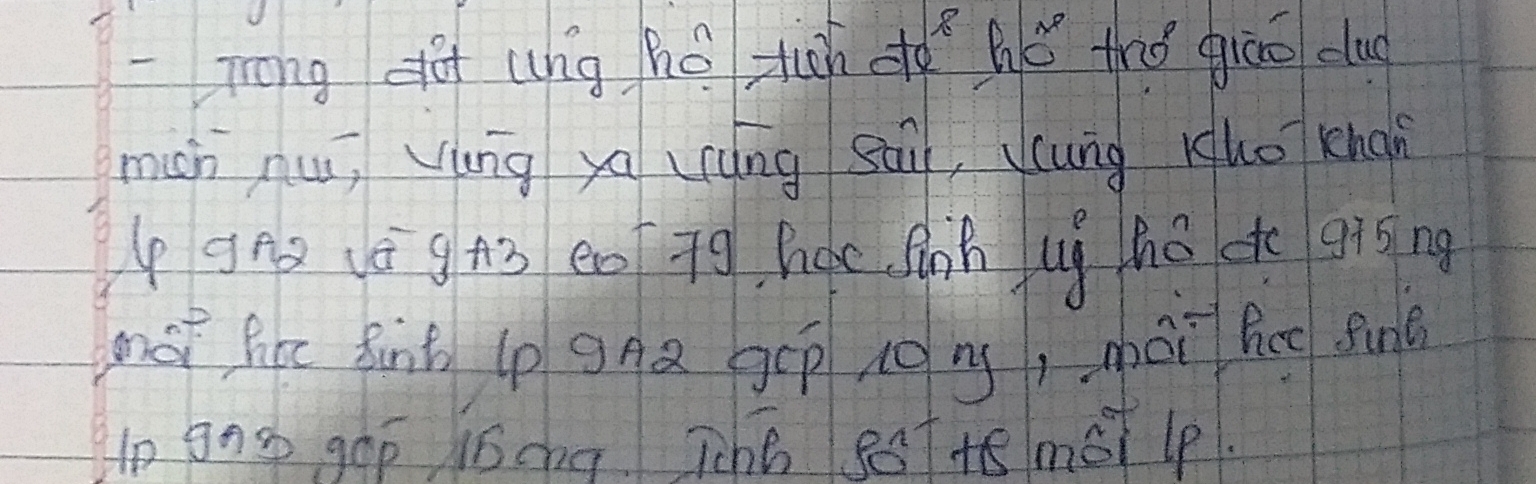 - Trong đợt ủng hộ tiền để hỗ trợ giáo dục
miền núi, vùng xa vùng sâu, vùng khó khăn
lp 9A2 và 9A3 có 79 học sinh uỷ hộ đc 975 ng
mỗi học sinh lp 9A2 góp 10 ng, mỗi học sinh
lp 9A3 góp 15 ng. Tính số hs mỗi lp.